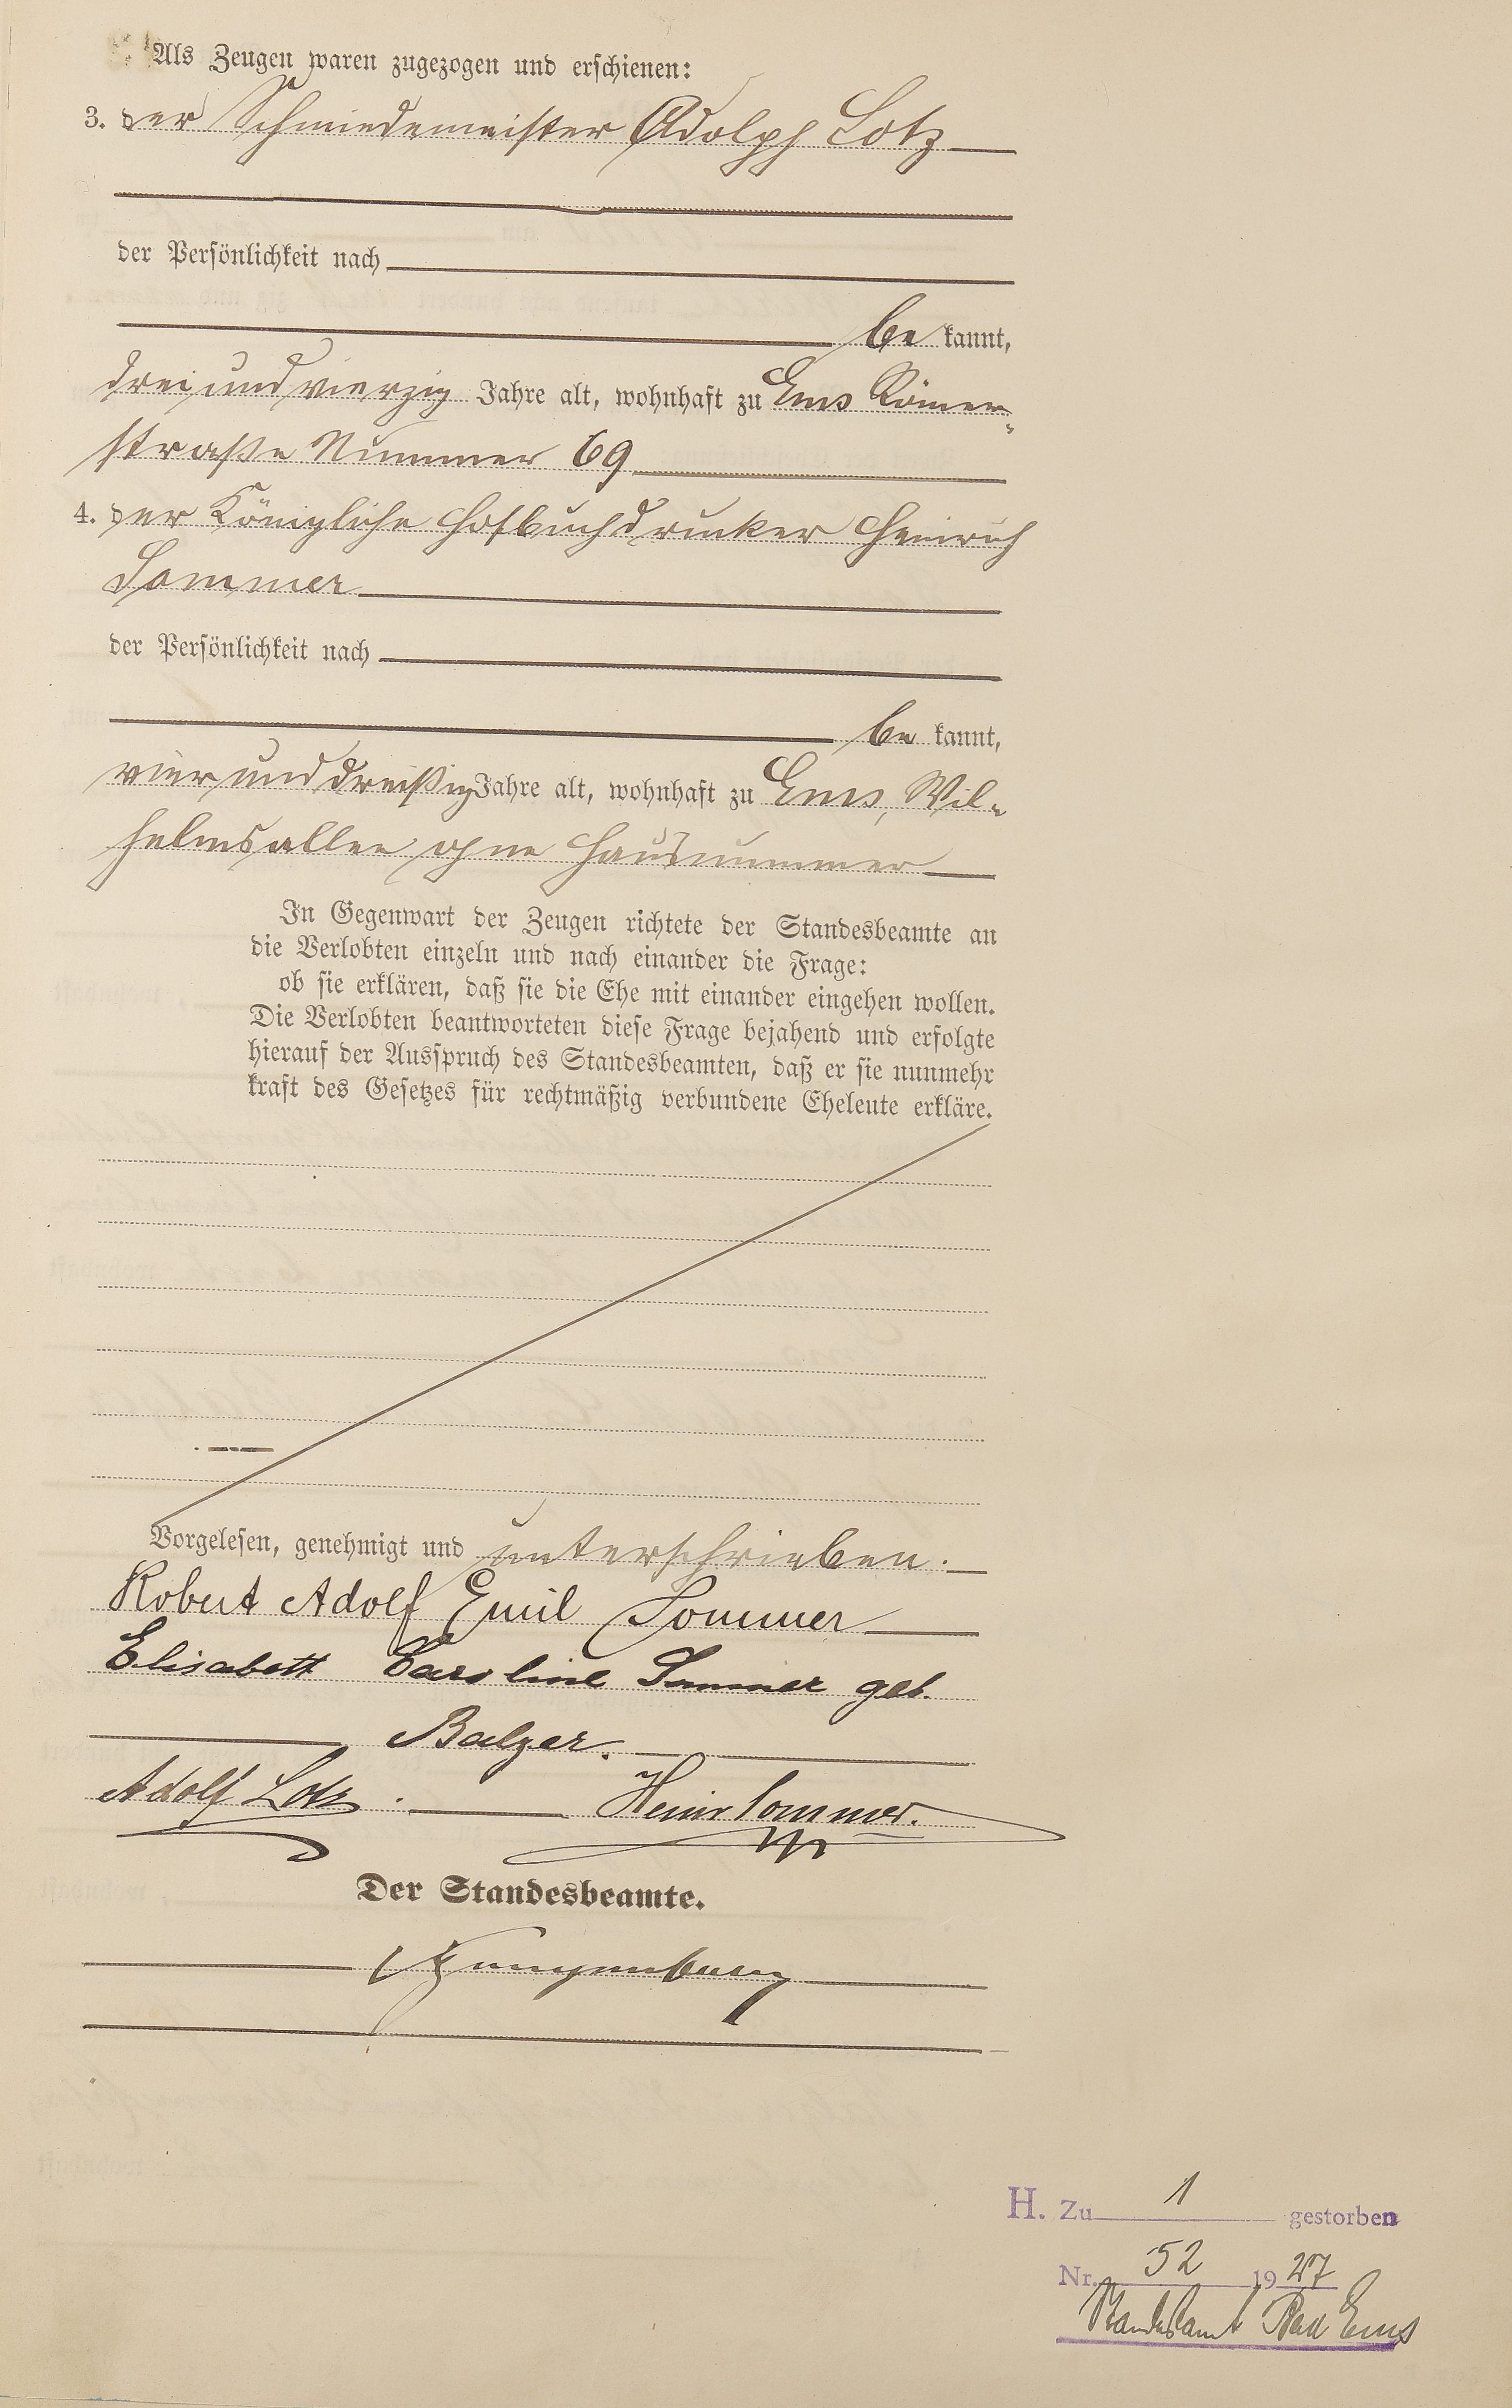 Als Zeugen waren zugezogen und erschienen:
3. der Schmiedemeister Adolph Lotz
der Persönlichkeit nach
be kannt,
dreiundvierzig Jahre alt, wohnhaft zu Ems Römer-
straße Nummer 69
4. der Königliche Hofbuchdrucker Heinrich
Sommer
der Persönlichkeit nach
be kannt,
vierunddreißig Jahre alt, wohnhaft zu Ems, Wil-
helmsallee ohne Hausnummer
In Gegenwart der Zeugen richtete der Standesbeamte an
die Verlobten einzeln und nach einander die Frage:
ob sie erklären, daß sie die Ehe mit einander eingehen wollen.
Die Verlobten beantworteten diese Frage bejahend und erfolgte
hierauf der Ausspruch des Standesbeamten, daß er sie nunmehr
kraft des Gesetzes für rechtmäßig verbundene Eheleute erkläre.
Vorgelesen, genehmigt und unterschrieben.
Robert Adolf Emil Sommer
Elisabeth Caroline Sommer geb.
Balzer.
Adolf Lotz. Heinr Sommer.
Der Standesbeamte.
H. Zu 1 gestorben
Nr. 52 1927
Standesamt Bad Ems